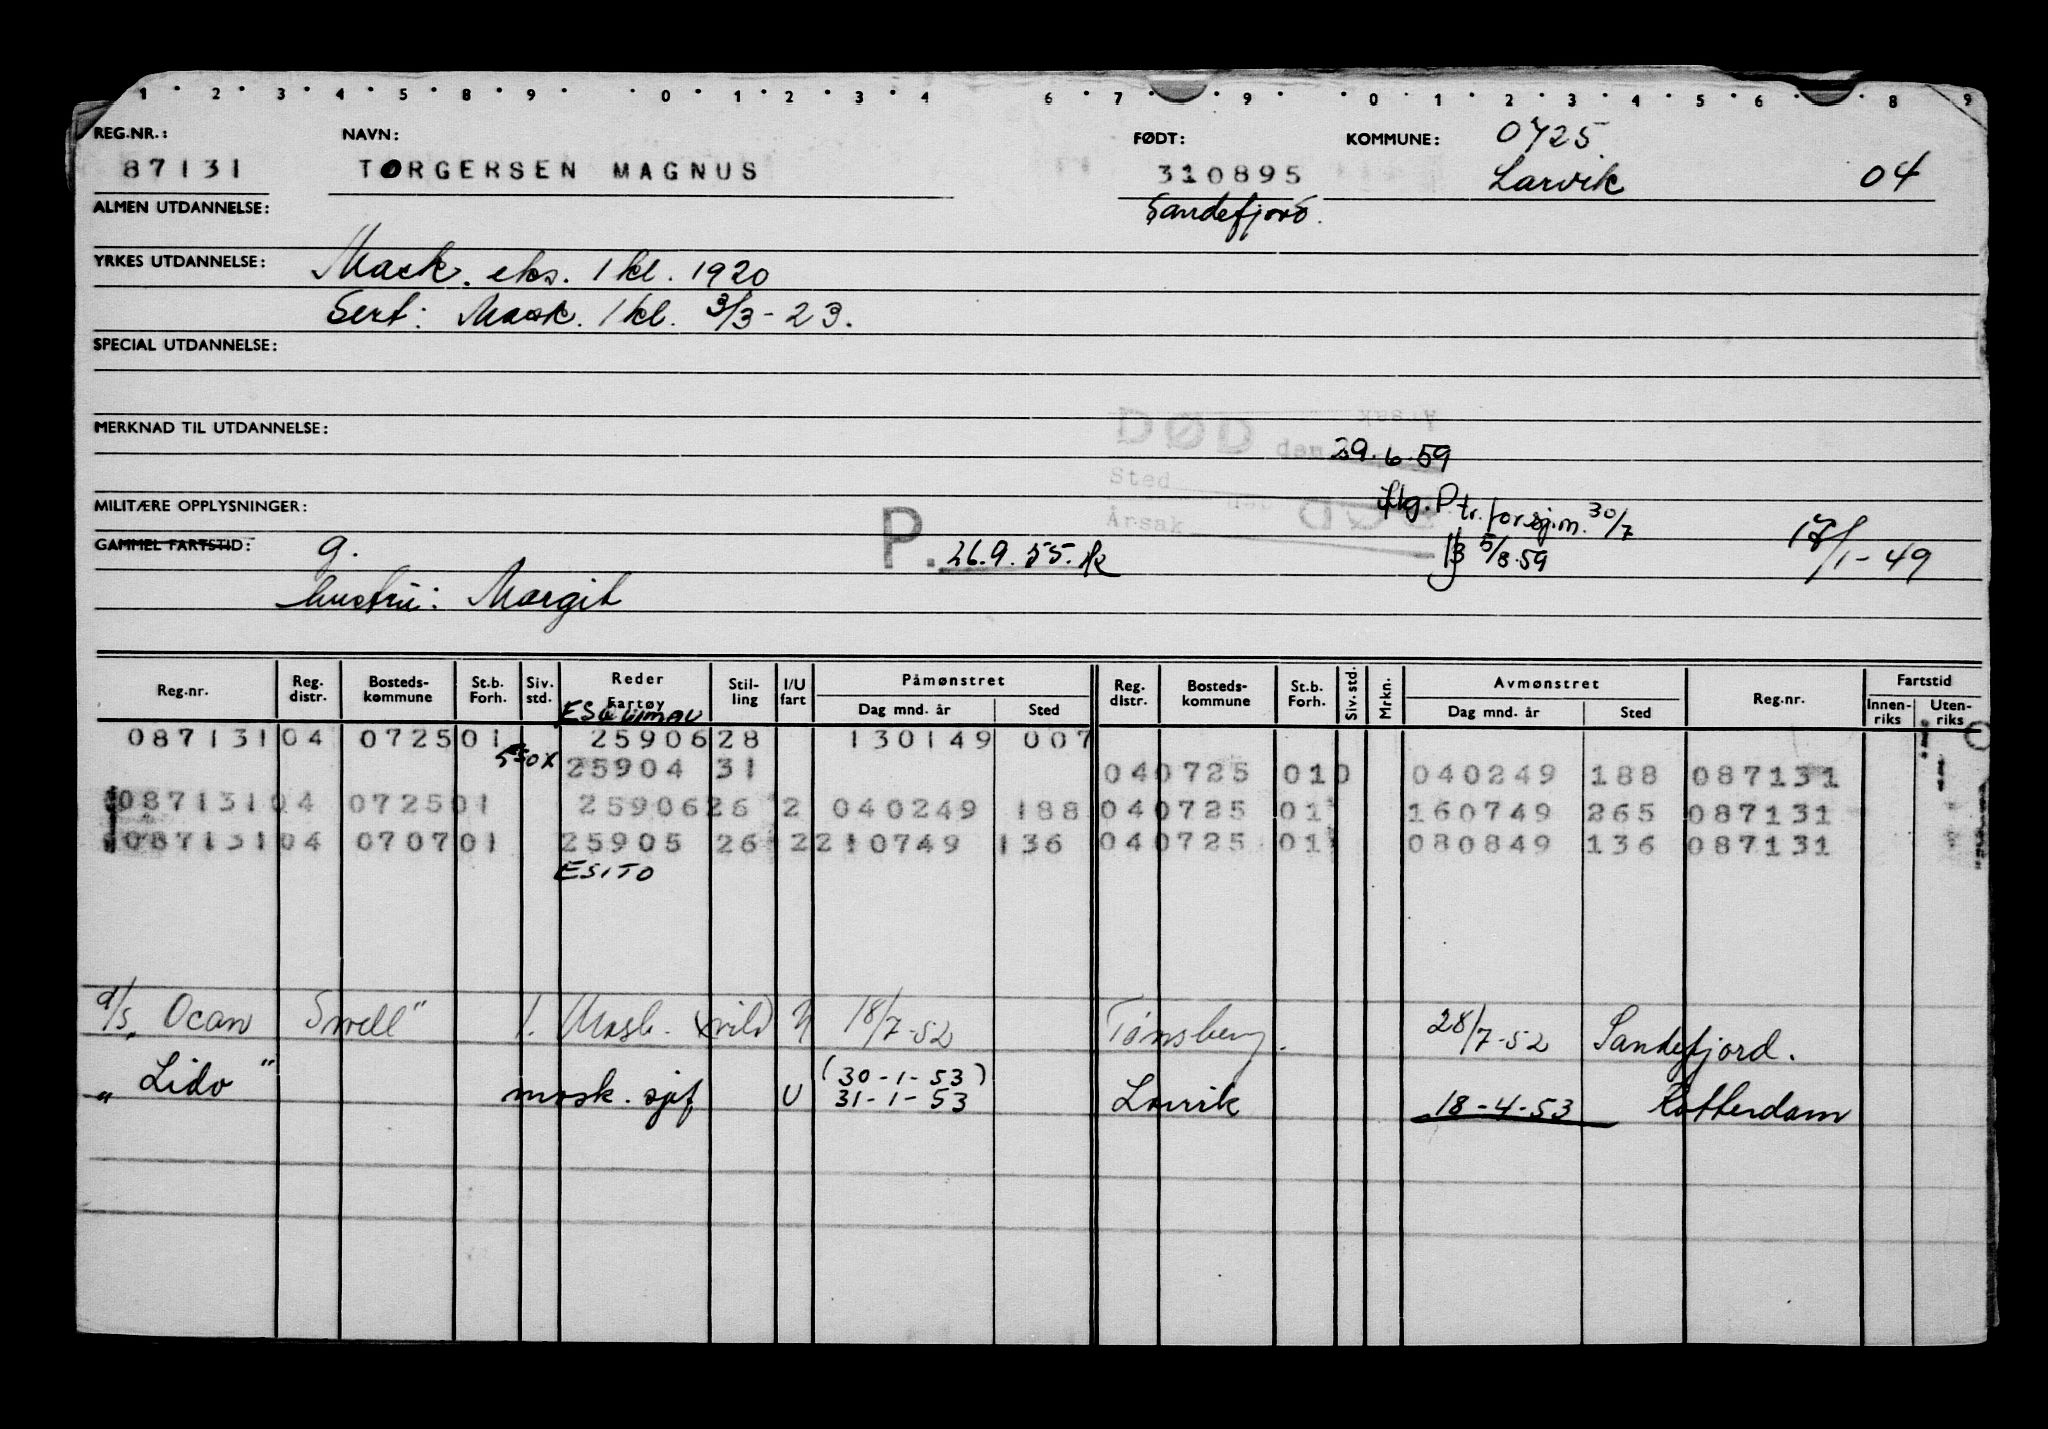 1 2 3 4 5 8 9 0 1 2 3 4 6 7 9 0 1 2 3 4 5 6 8 9
REG.NR.: NAVN: FØDT: KOMMUNE: 0725
87131 TORGERSEN MAGNUS 310895 Larvik 04
ALMEN UTDANNELSE: Sandefjord.
YRKES UTDANNELSE: Mask. eks. 1 kl. 1920
Sert: Mask. 1 kl. 3/3-23.
SPECIAL UTDANNELSE:
MERKNAD TIL UTDANNELSE:
DØD den 29.6.59
Sted
Årsak
MILITÆRE OPPLYSNINGER: flg. P tr. for sj.m. 30/7
5/8.59
GAMMEL FARTSTID: g. P. 26.9.55. 1-49
hustru: Margit
Reg.nr. Reg. distr. Bosteds-kommune St.b. Forh. Siv. std. Reder Fartøy Stil-ling I/U fart Påmønstret Dag mnd. år Sted Reg. distr. Bosteds-kommune St.b. Forh. Siv. std. Mrkn. Avmønstret Dag mnd. år Sted Reg.nr. Fartstid Innen-riks Uten-riks
087131 04 0725 01 25906 28 130149 007
25904 31 04 0725 010 040249 188 087131
087131 04 0725 01 25906 26 2 040249 188 04 0725 01 160749 265 087131
087131 04 0707 01 25905 26 2 210749 136 04 0725 01 080849 136 087131
ESITO
Ocan Smell" 1. Mask. 18/7-52 Tønsberg. 28/7-52 Sandefjord.
" Lido " mask. sjef U (30-1-53) 31-1-53 Larvik 18-4-53 Rotterdam